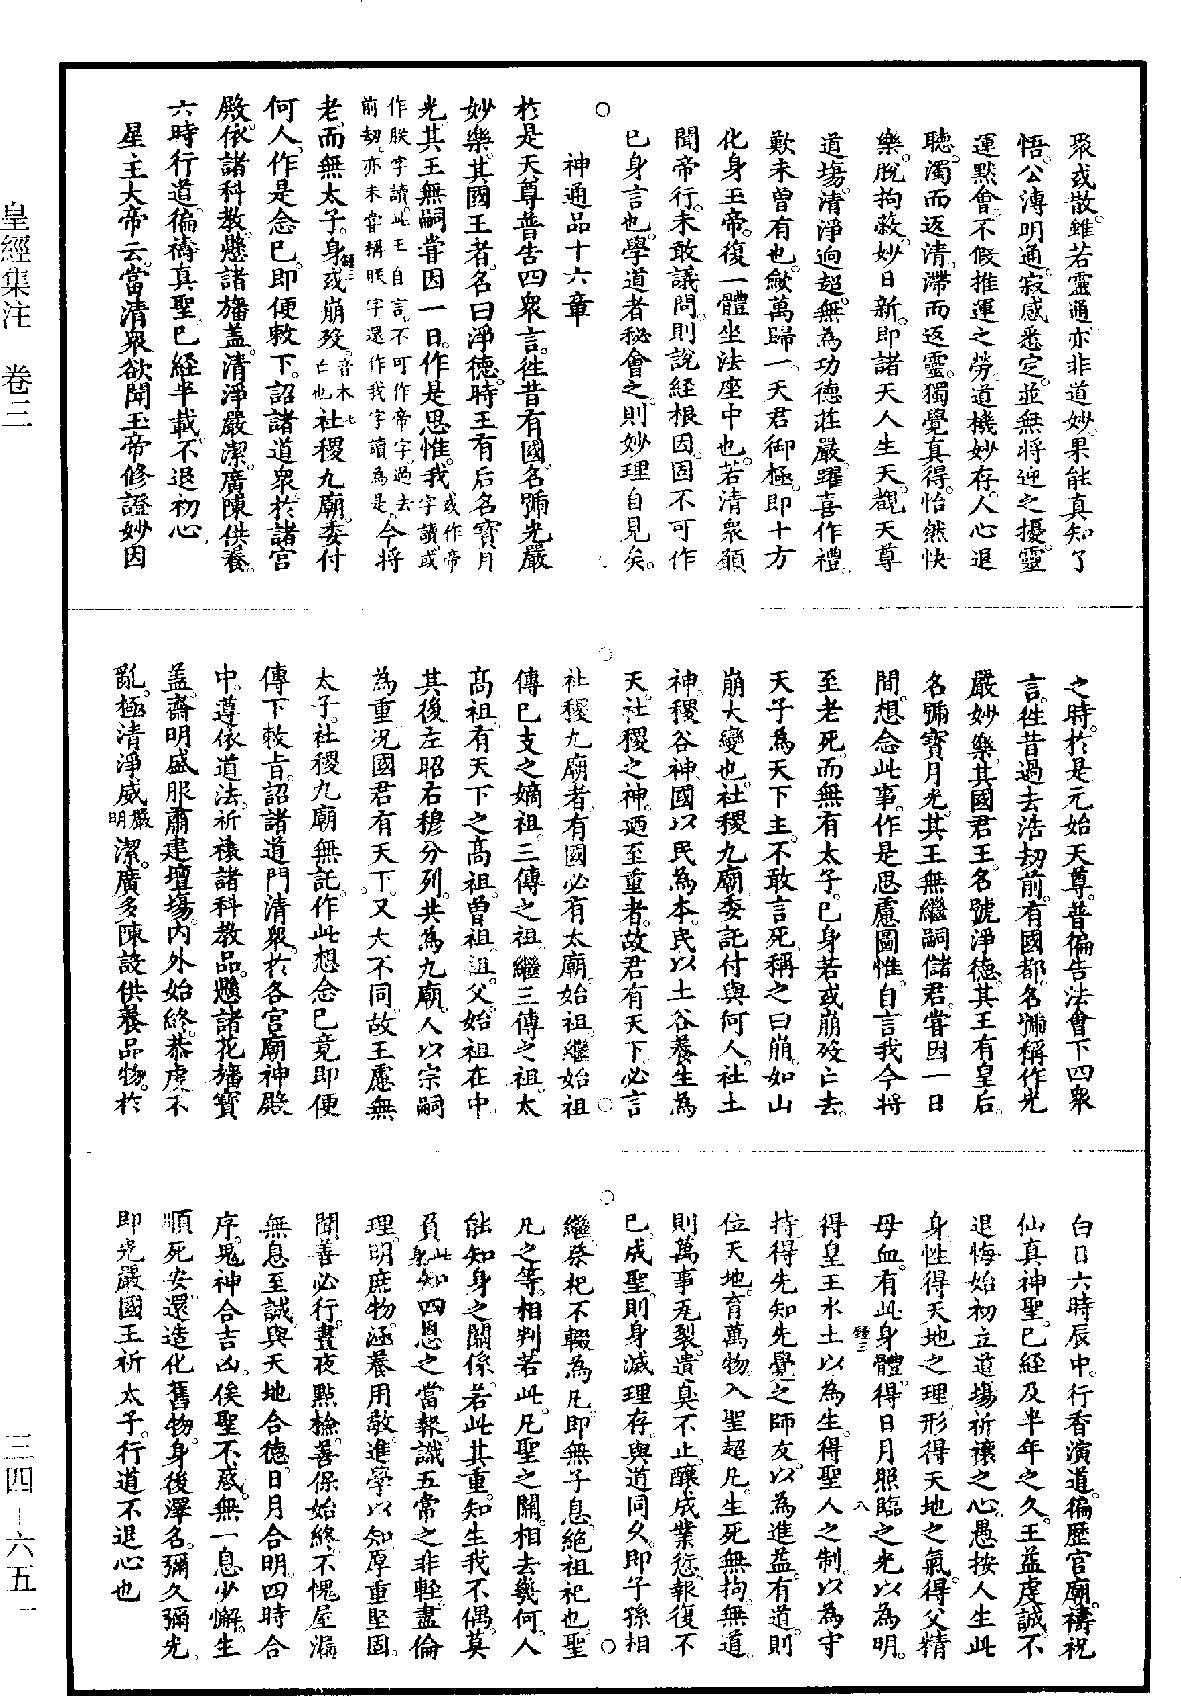 聚或散雖若靈通亦非道妙果能真知了
悟公溥明通寂感悉定並無將迎之擾靈
運默會不假推運之勞道機妙存人心退
聽濁而返清滯而返靈獨覺真得怡然快
樂脫拘敎妙日新即諸天人生天觀天尊
道場清淨逈超無為功德莊嚴躍喜作禮
歎未曾有也歛萬歸一天君御極即十方
化身玉帝復一體坐法座中也若清衆願
聞帝行未敢議問則說經根因因不可作
已身言也學道者秘會之則妙理自見矣
神通品十六章
於是天尊普告四衆言徃昔有國名號光嚴
妙樂其國王者名曰淨德時王有后名寶月
光其王無嗣嘗因一日作是思惟我或作帝字讀或
作朕字讀此王自言不可作帝字過去
前劫亦未嘗稱朕字還作我字讀為是今將
老而無太子身或崩歿音木亡也社稷九廟委付
何人作是念已即便敕下詔諸道衆於諸宮
殿依諸科教懸諸旛盖清淨嚴潔廣陳供養
六時行道徧禱真聖已經半載不退初心
星主大帝云當清衆欲聞玉帝修證妙因
之時於是元始天尊普徧告法會下四衆
言徃昔過去浩劫前有國都名號稱作光
嚴妙樂其國君王名號淨德其王有皇后
名號寶月光其王無繼嗣儲君嘗因一日
間想念此事作是思慮圖惟自言我今將
至老死而無有太子已身若或崩歿亡去
天子為天下主不敢言死稱之曰崩如山
崩大變也社稷九廟委託付與何人社土
神稷谷神國以民為本民以土谷養生為
天社稷之神廼至重者故君有天下必言
社稷九廟者有國必有太廟始祖繼始祖
傳已支之嫡祖三傳之祖繼三傳之祖太
高祖有天下之高祖曾祖祖父始祖在中
其後左昭右穆分列共為九廟人以宗嗣
為重況國君有天下又大不同故王慮無
太子社稷九廟無託作此想念已竟即便
傳下敕旨詔諸道門清衆於各宮廟神殿
中遵依道法祈禳諸科教品懸諸花旛寶
盖齋明盛服肅建壇場內外始終恭虔不
亂極清淨威嚴明潔廣多陳設供養品物於
白日六時辰中行香演道徧歷官廟禱祝
仙真神聖已經及半年之久王益虔誠不
退悔始初立道場祈禳之心愚按人生此
身性得天地之理形得天地之氣得父精
母血有此身體得日月照臨之光以為明
得皇王水土以為生得聖人之制以為守
持得先知先覺之師友以為進益有道則
位天地育萬物入聖超凡生死無拘無道
則萬事瓦裂遺臭不止釀成業愆報復不
已成聖則身滅理存與道同久即子孫相
繼祭祀不輟為凡即無子息絕祖祀也聖
凡之等相判若此凡聖之關相去幾何人
能知身之關係若此其重知生我不偶莫
負此身知四恩之當報識五常之非輕盡倫
理明庶物涵養用敬進學以知厚重堅固
聞善必行晝夜點檢善保始終不愧屋漏
無息至誠與天地合德日月合明四時合
序鬼神合吉凶俟聖不惑無一息少懈生
順死安還造化舊物身後澤名彌久彌光
即光嚴國王祈太子行道不退心也
皇經集注　卷三
三四－六五一